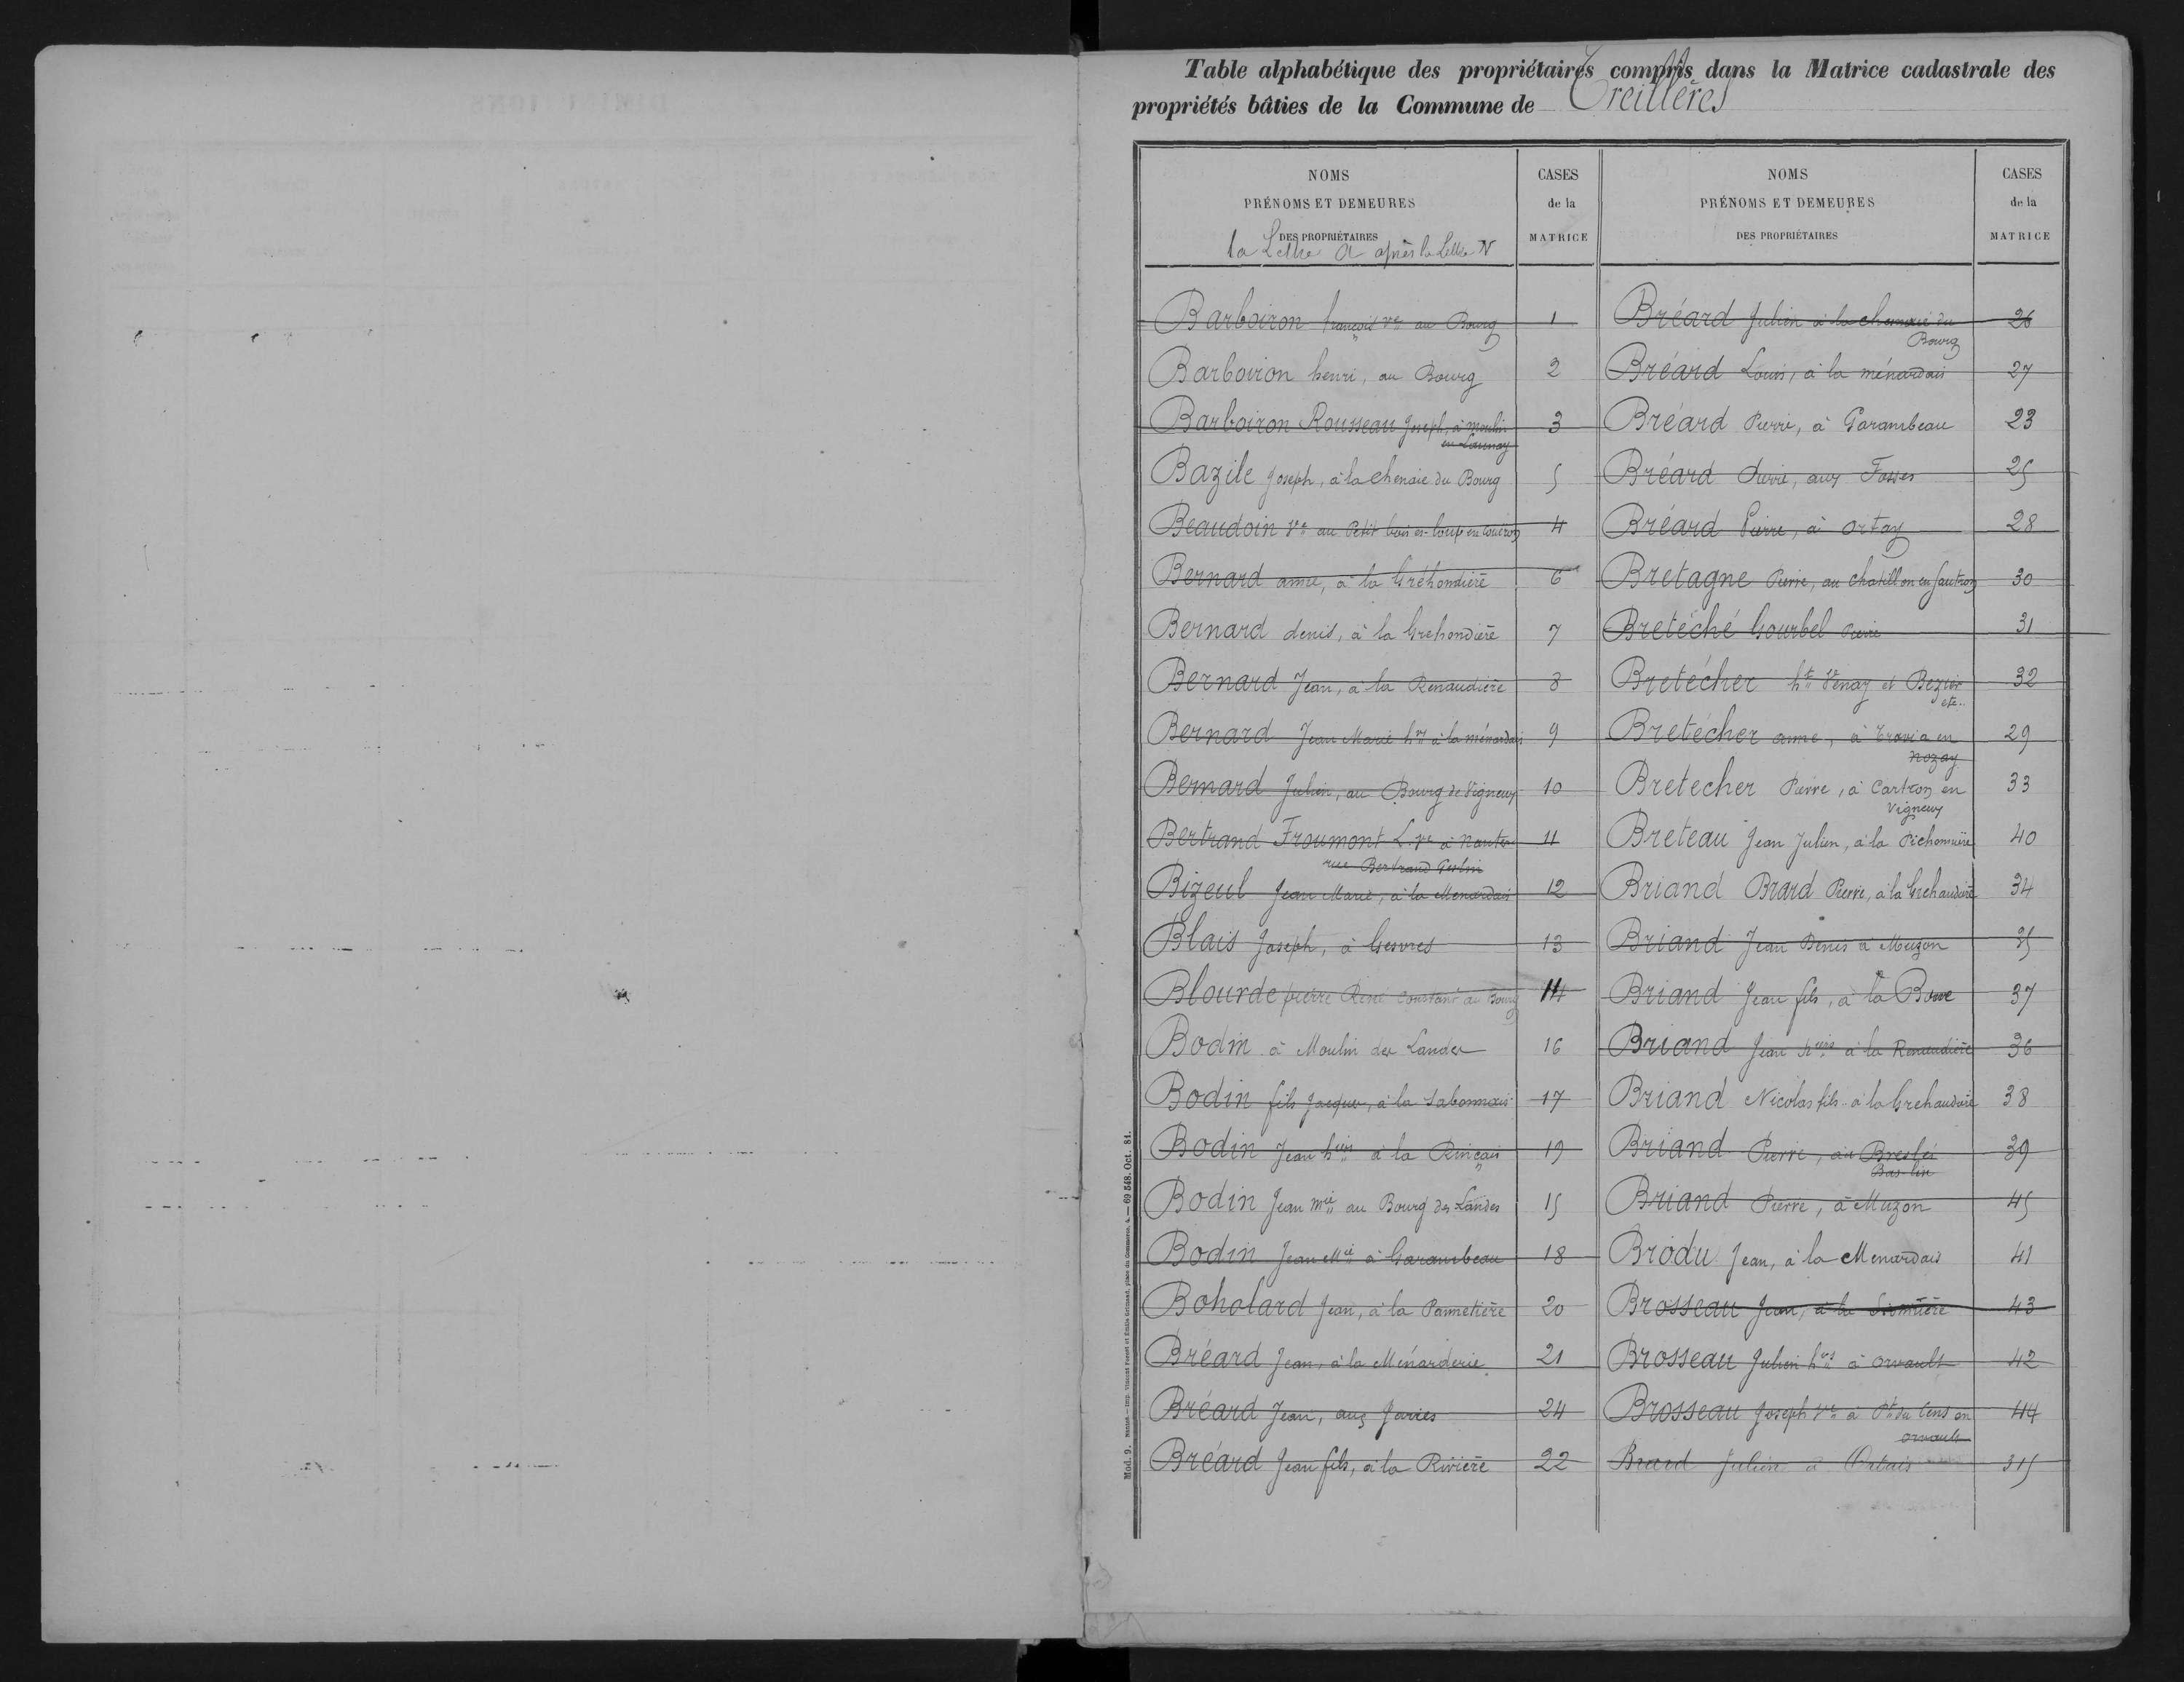 Table alphabétique des propriétaires compris dans la Matrice cadastrale des
propriétés bâties de la Commune de Treillères
NOMS
PRÉNOMS ET DEMEURES
DES PROPRIÉTAIRES
la Lettre A après la Lettre N
CASES
de la
MATRICE
Barboiron françois ve au Bourg 1
Barboiron henri, au Bourg 2
Barboiron Rousseau Joseph, à moulin 3
en Launay
Bazile Joseph, à la chenaie du Bourg 5
Beaudoin Ve au Petit bois es-loup en Couëron 4
Bernard anne, à la Gréhondière 6
Bernard denis, à la Grehondière 7
Bernard Jean, à la Renaudière 8
Bernard Jean Marie hers à la ménardais 9
Bernard Julien, au Bourg de Vigneux 10
Bertrand Froumont L. Ve à nantes 11
rue Bertrand Geslin
Bizeul Jean Marie, à la Menardais 12
Blais Joseph, à Gesvres 13
Blourde pierre René Constant au Bourg 14
Bodin à Moulin des Landes 16
Bodin fils Jacques, à la Sabonnais 17
Bodin Jean hers à la Rinçais 19
Bodin Jean Mie au Bourg des Landes 15
Bodin Jean Mie à Garambeau 18
Boholard Jean, à la Pannetière 20
Bréard Jean, à la Ménarderie 21
Bréard Jean, aux Jarries 24
Bréard Jean fils, à la Rivière 22
NOMS
PRÉNOMS ET DEMEURES
DES PROPRIÉTAIRES
CASES
de la
MATRICE
Bréard Julien à la chenaie du 26
Bourg
Bréard Louis, à la ménardais 27
Bréard Pierre, à Garambeau 23
Bréard Pierre, aux Fosses 25
Bréard Pierre, à Ortay 28
Bretagne Pierre, au chatillon en Sautron 30
Bretéché Gourbel Pierre 31
Bretécher hte Venay et Bezier 32
etc..
Bretécher anne, à en 29
nozay
Bretecher Pierre, à Cartron en 33
Vigneux
Breteau Jean Julien, à la Pichonnière 40
Briand Brard Pierre, à la Grehaudière 34
Briand Jean Denis à Muzon 35
Briand Jean fils, à la 37
Briand Jean hers à la Renaudière 36
Briand Nicolas fils à la Grehaudière 38
Briand Pierre, au 39
Briand Pierre, à Muzon 45
Brodu Jean, à la Menardais 41
Brosseau Jean, à la 43
Brosseau Julien hers à orvault 42
Brosseau Joseph Ve à Pt du Cens en 44
orvault
Brard Julien à 315
Mod. 9. Nantes. — Imp. Vincent Forest et Émile Grimaud, place du Commerce, 4. — 69 548. Oct. 81.